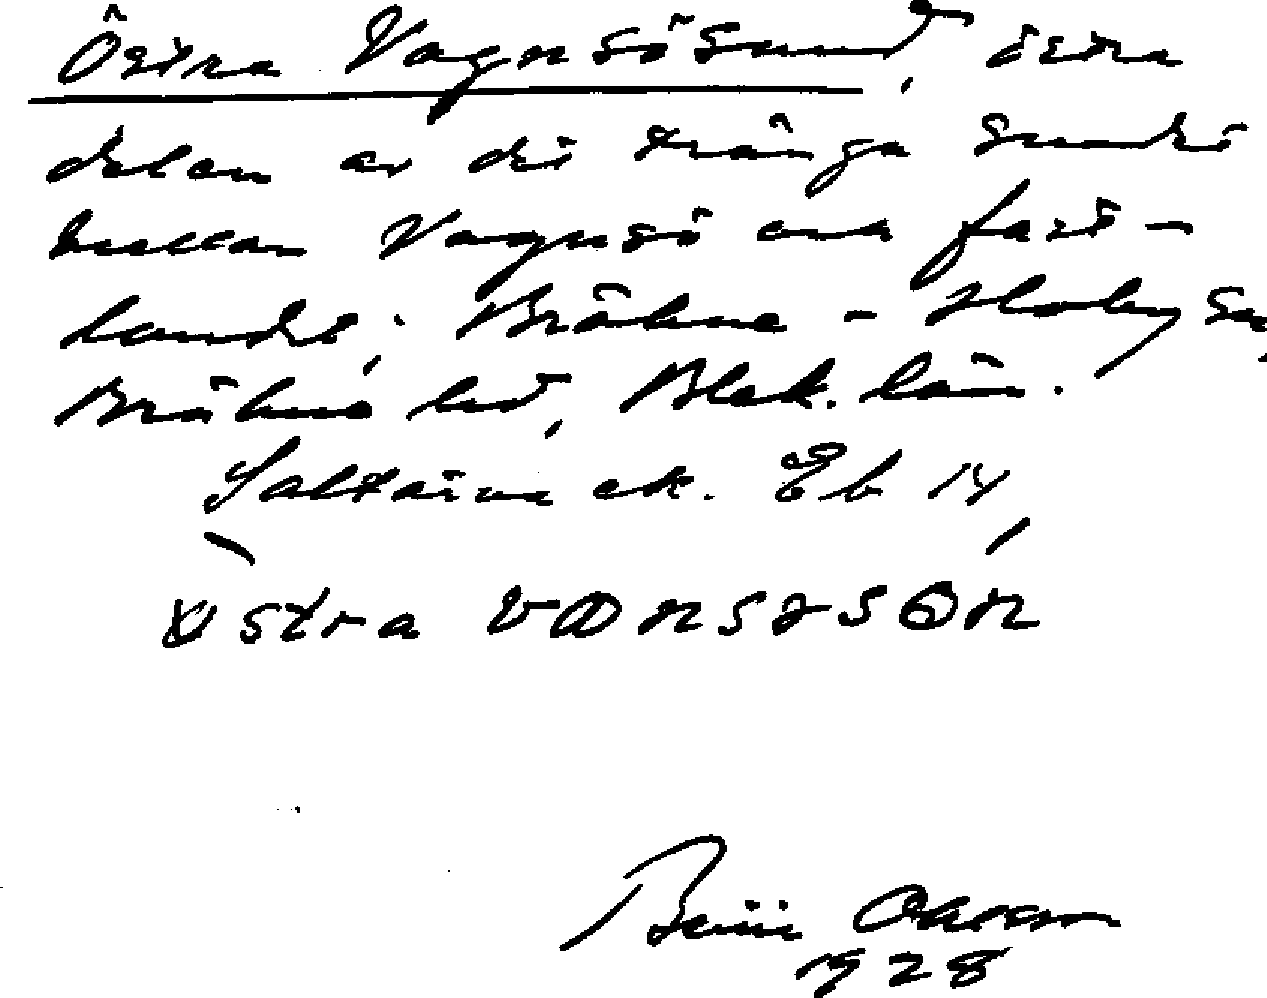 Östra Vagnsösund, östra
delen av det trånga sundet
mellan Vagnsö och fast-
landet; Bräkne-Hoby sn,
Bräkne hd, Blek. län.
Saltärna ek. Eb 14
östra
Berit Olsson
1928